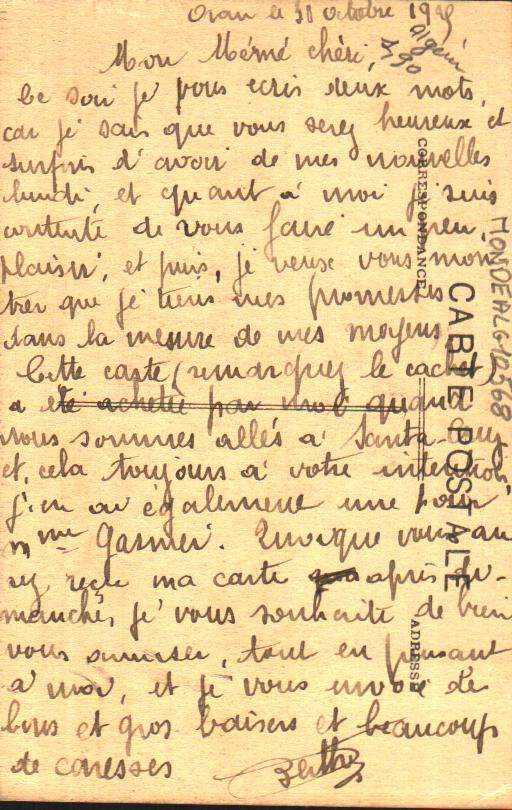 Oran le 31 octobre 19
Mon Mémé chéri,
Ce soir je vous ecris deux mots,
car je sais que vous serez heureux et
surpris d'avoir de mes nouvelles
lundi, et quant à moi je suis
contente de vous faire un peu
plaisir, et puis, je veux vous mon
trer que je tiens mes promesses
dans la mesure de mes moyens.
Cette carte (remarquez le cachet)
a été achetée par moi quand
nous sommes allés à Santa-Cruz
et, cela toujours à votre intention,
j'en ai egalement une pour
Mme Garnier. Quoique vous au
rez reçu ma carte après di-
manche, je vous souhaite de bien
vous amuser, tout en pensant
à moi, et je vous envoie de
bons et gros baisers et beaucoup
de caresses
Berthe
CORRESPONDANCE
CARTE POSTALE
ADRESSE
MONDEALG10568